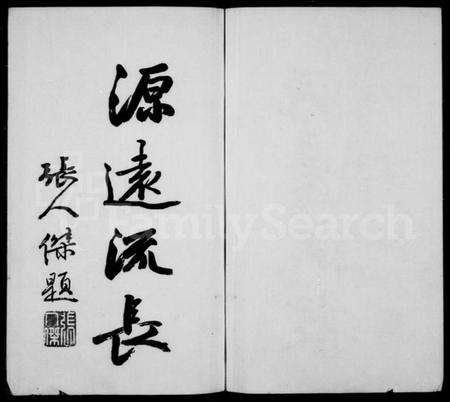 源遠流長
張人傑題
張人傑
FamilySearch